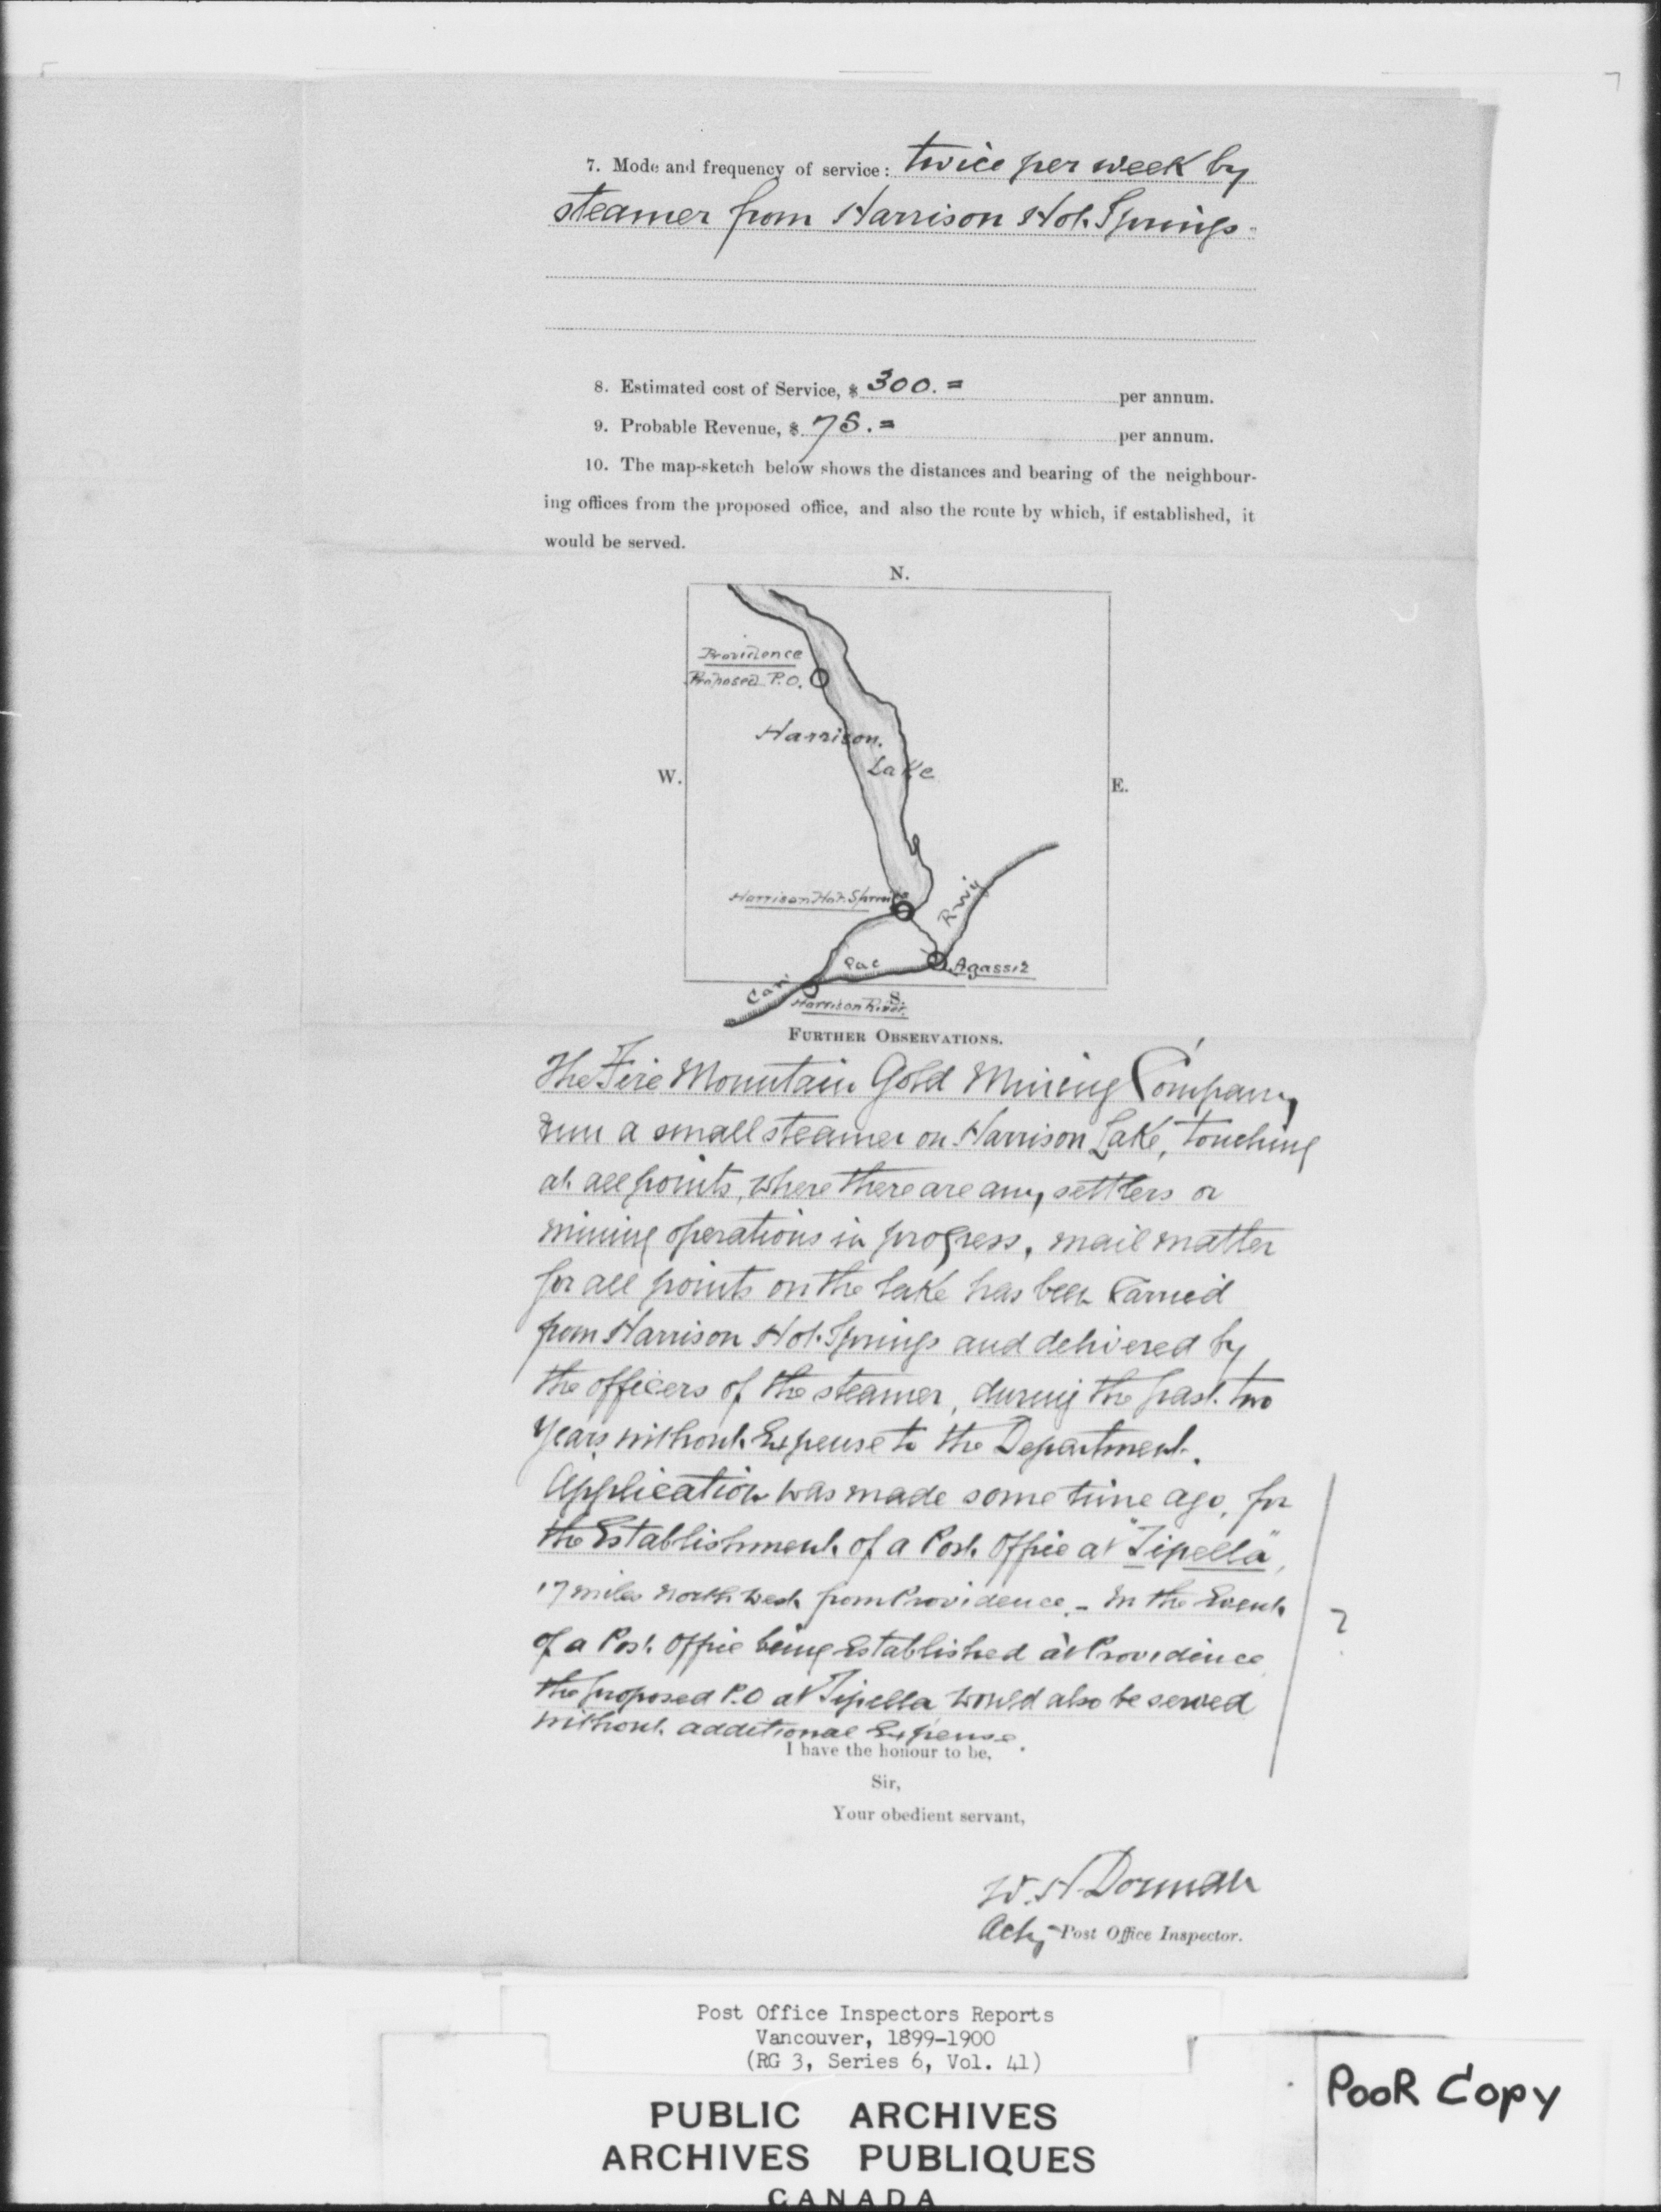 7. Mode and frequency of service: twice per week by
steamer from Harrison Hot Springs.
8. Estimated cost of Service, $ 300.= per annum.
9. Probable Revenue, $ 75.= per annum.
10. The map-sketch below shows the distances and bearing of the neighbour-
ing offices from the proposed office, and also the route by which, if established, it
would be served.
N.
Providence
Proposed P.O.
Harrison
Lake
W.
E.
Harrison Hot Springs
Rwy
Can Pac
Agassiz
S.
Harrison River
FURTHER OBSERVATIONS.
The Fire Mountain Gold Mining Company
run a small steamer on Harrison Lake, touching
at all points, where there are any settlers or
mining operations in progress, mail matter
for all points on the Lake has been carried
from Harrison Hot Springs and delivered by
the officers of the steamer, during the past two
years without Expense to the Department.
Application was made some time ago, for
the Establishment of a Post Office at "Tipella",
17 miles North West from Providence. - In the Event
of a Post Office being Established at Providence
the proposed P.O at Tipella would also be served
without additional Expense.
?
I have the honour to be,
Sir,
Your obedient servant,
W. H. Dorman
Actg Post Office Inspector.
Post Office Inspectors Reports
Vancouver, 1899-1900
(RG 3, Series 6, Vol. 41)
PUBLIC ARCHIVES
ARCHIVES PUBLIQUES
CANADA
POOR COPY